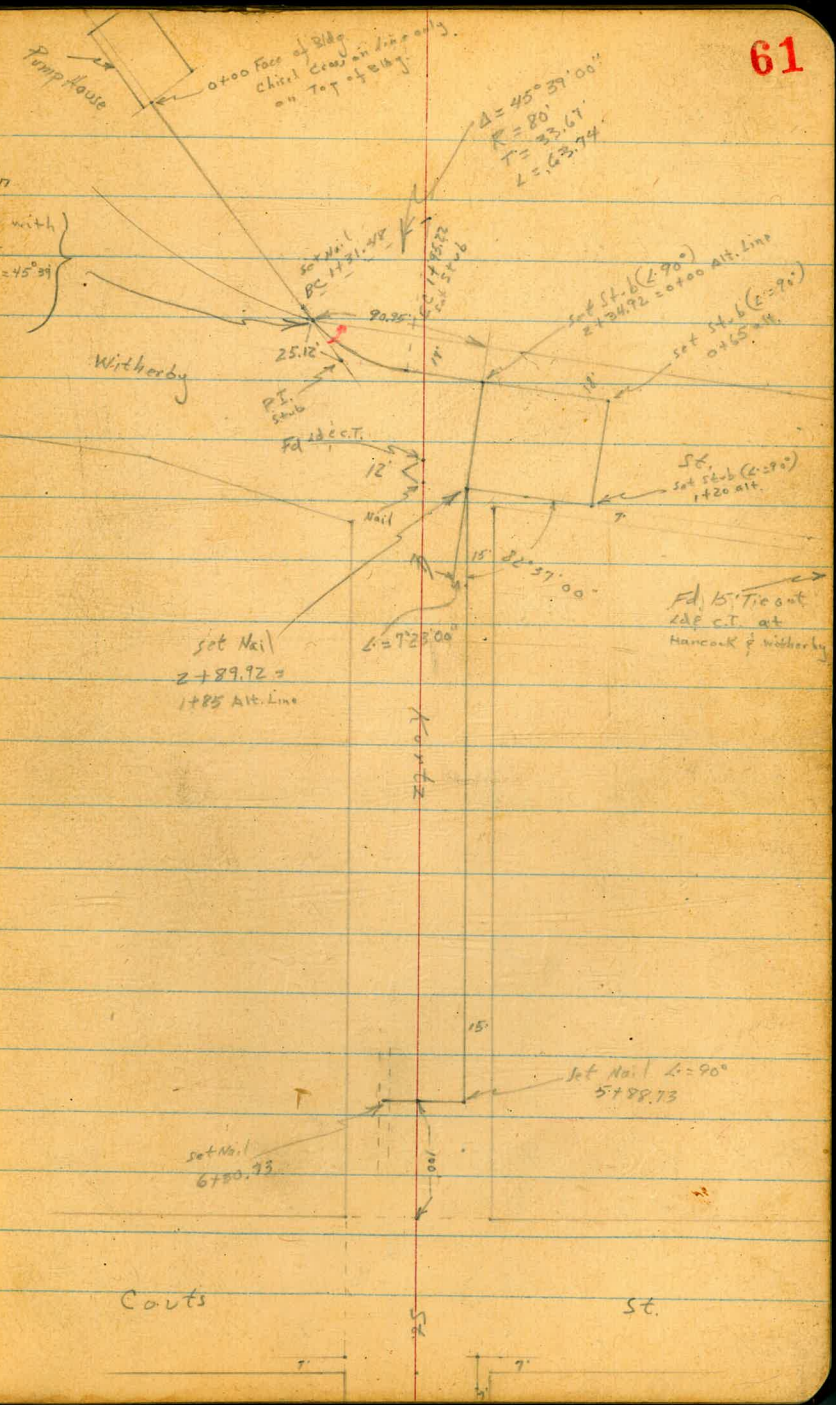 61
Pump House
0+00 Face of Bldg
Chisel Cross on line only.
on Top of Bldg.
Δ = 45° 39' 00"
R = 80'
T = 33.67'
L = 63.74
with
= 45° 39'
set Nail
BC 1+31.48
EC 1+95.22
set stub
90.95'
25.12'
P.I.
Stub
18'
set Stub (∠=90°)
2+34.92 = 0+00 Alt. Line
set Stub (∠=90°)
0+65 alt.
18'
Witherby
St.
set Stub (∠=90°)
1+20 alt.
7'
Fd Ld & C.T.
12'
Nail
15'
82° 37' 00"
∠ = 7° 23' 00"
Fd. 15' Tie out
Ld & C.T. at
Hancock & Witherby
set Nail
2+89.92 =
1+85 Alt. Line
Kurtz
15'
set Nail ∠ = 90°
5+88.73
set Nail
6+80.73
100'
Couts
St.
St.
7'
7'